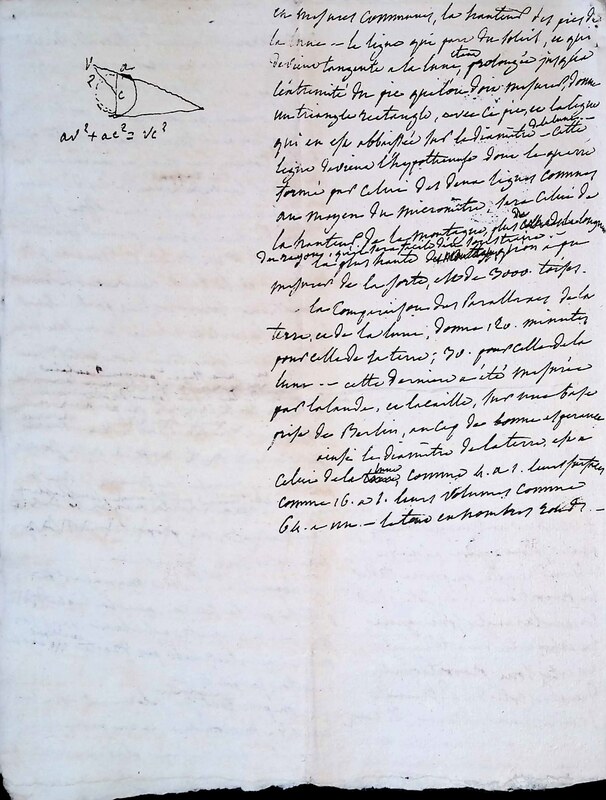 en mesures communes, la hauteur des pics de
la lune — la ligne qui part du soleil, et qui
devient tangente a la lune, étant prolongée jusqu'a
l'extremité du pic qu'on doit mesurer, donne
un triangle rectangle, avec ce pic, et la ligne
qui en est abbaissée sur le diametre de la lune — cette
ligne devient l'hypothenuse dont le quarré
formé par celui des deux lignes connues
au moyen du micrometre, sera celui de
la hauteur de la montagne, plus de la longueur
du rayon, qu'il
la plus haute qu'on a pu
mesurer de la sorte, est de 3000 toises.
la Comparaison des Parallaxes de la
terre, et de la lune, donne 120. minutes
pour celle de la terre; 30. pour celle de la
lune — cette derniere a été mesurée
par lalande, et lacaille, sur une base
prise de Berlin, au cap de bonne esperance
ainsi le diametre de la terre, est a
celui de la lune, comme 4. a 1. leurs surfaces
comme 16. a 1. leurs volumes comme
64. a un. — le tout en nombres ronds. —
V a
2
c
av² + ac² = vc²